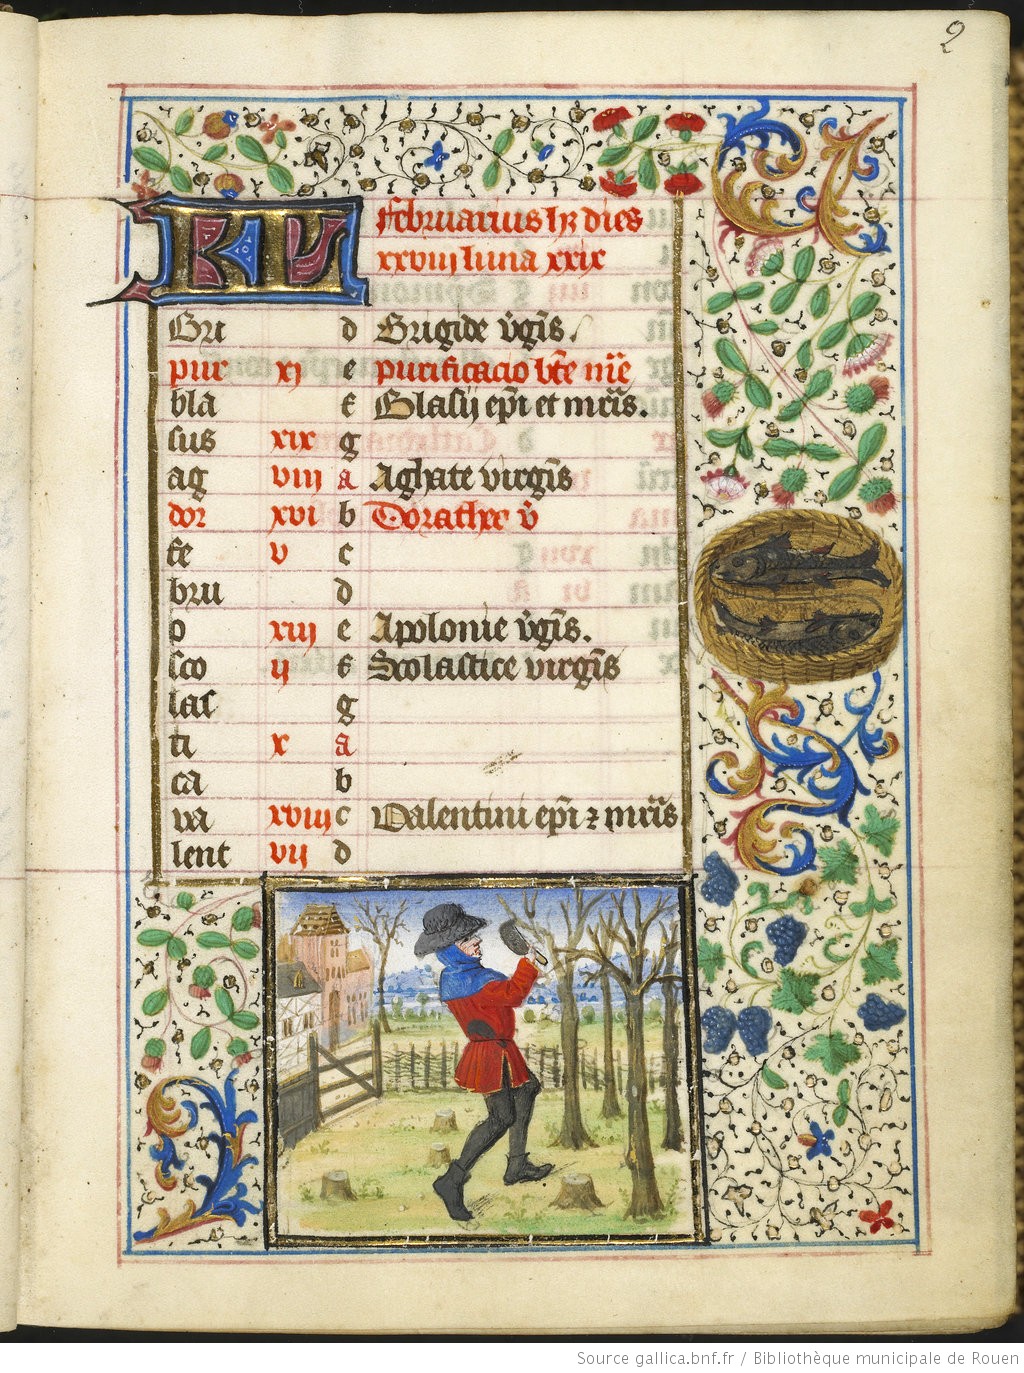 2
KL Februarius hꝫ dies
xxviij luna xxix
Bri d Brigide v̄gīs.
pur xj e purificacio bt̄e mīe
bla f Blasij ep̄i et mr̄is.
sus xix g
ag viij a Aghate virgīs
dor xvi b Dorathee v̄
fe v c
bru d
o xiij e Apolonie v̄gīs.
sco ij f Scolastice virgīs
las g
ti x a
ca b
va xviij c Valentini ep̄i ⁊ mr̄is
lent vij d
Source gallica.bnf.fr / Bibliothèque municipale de Rouen